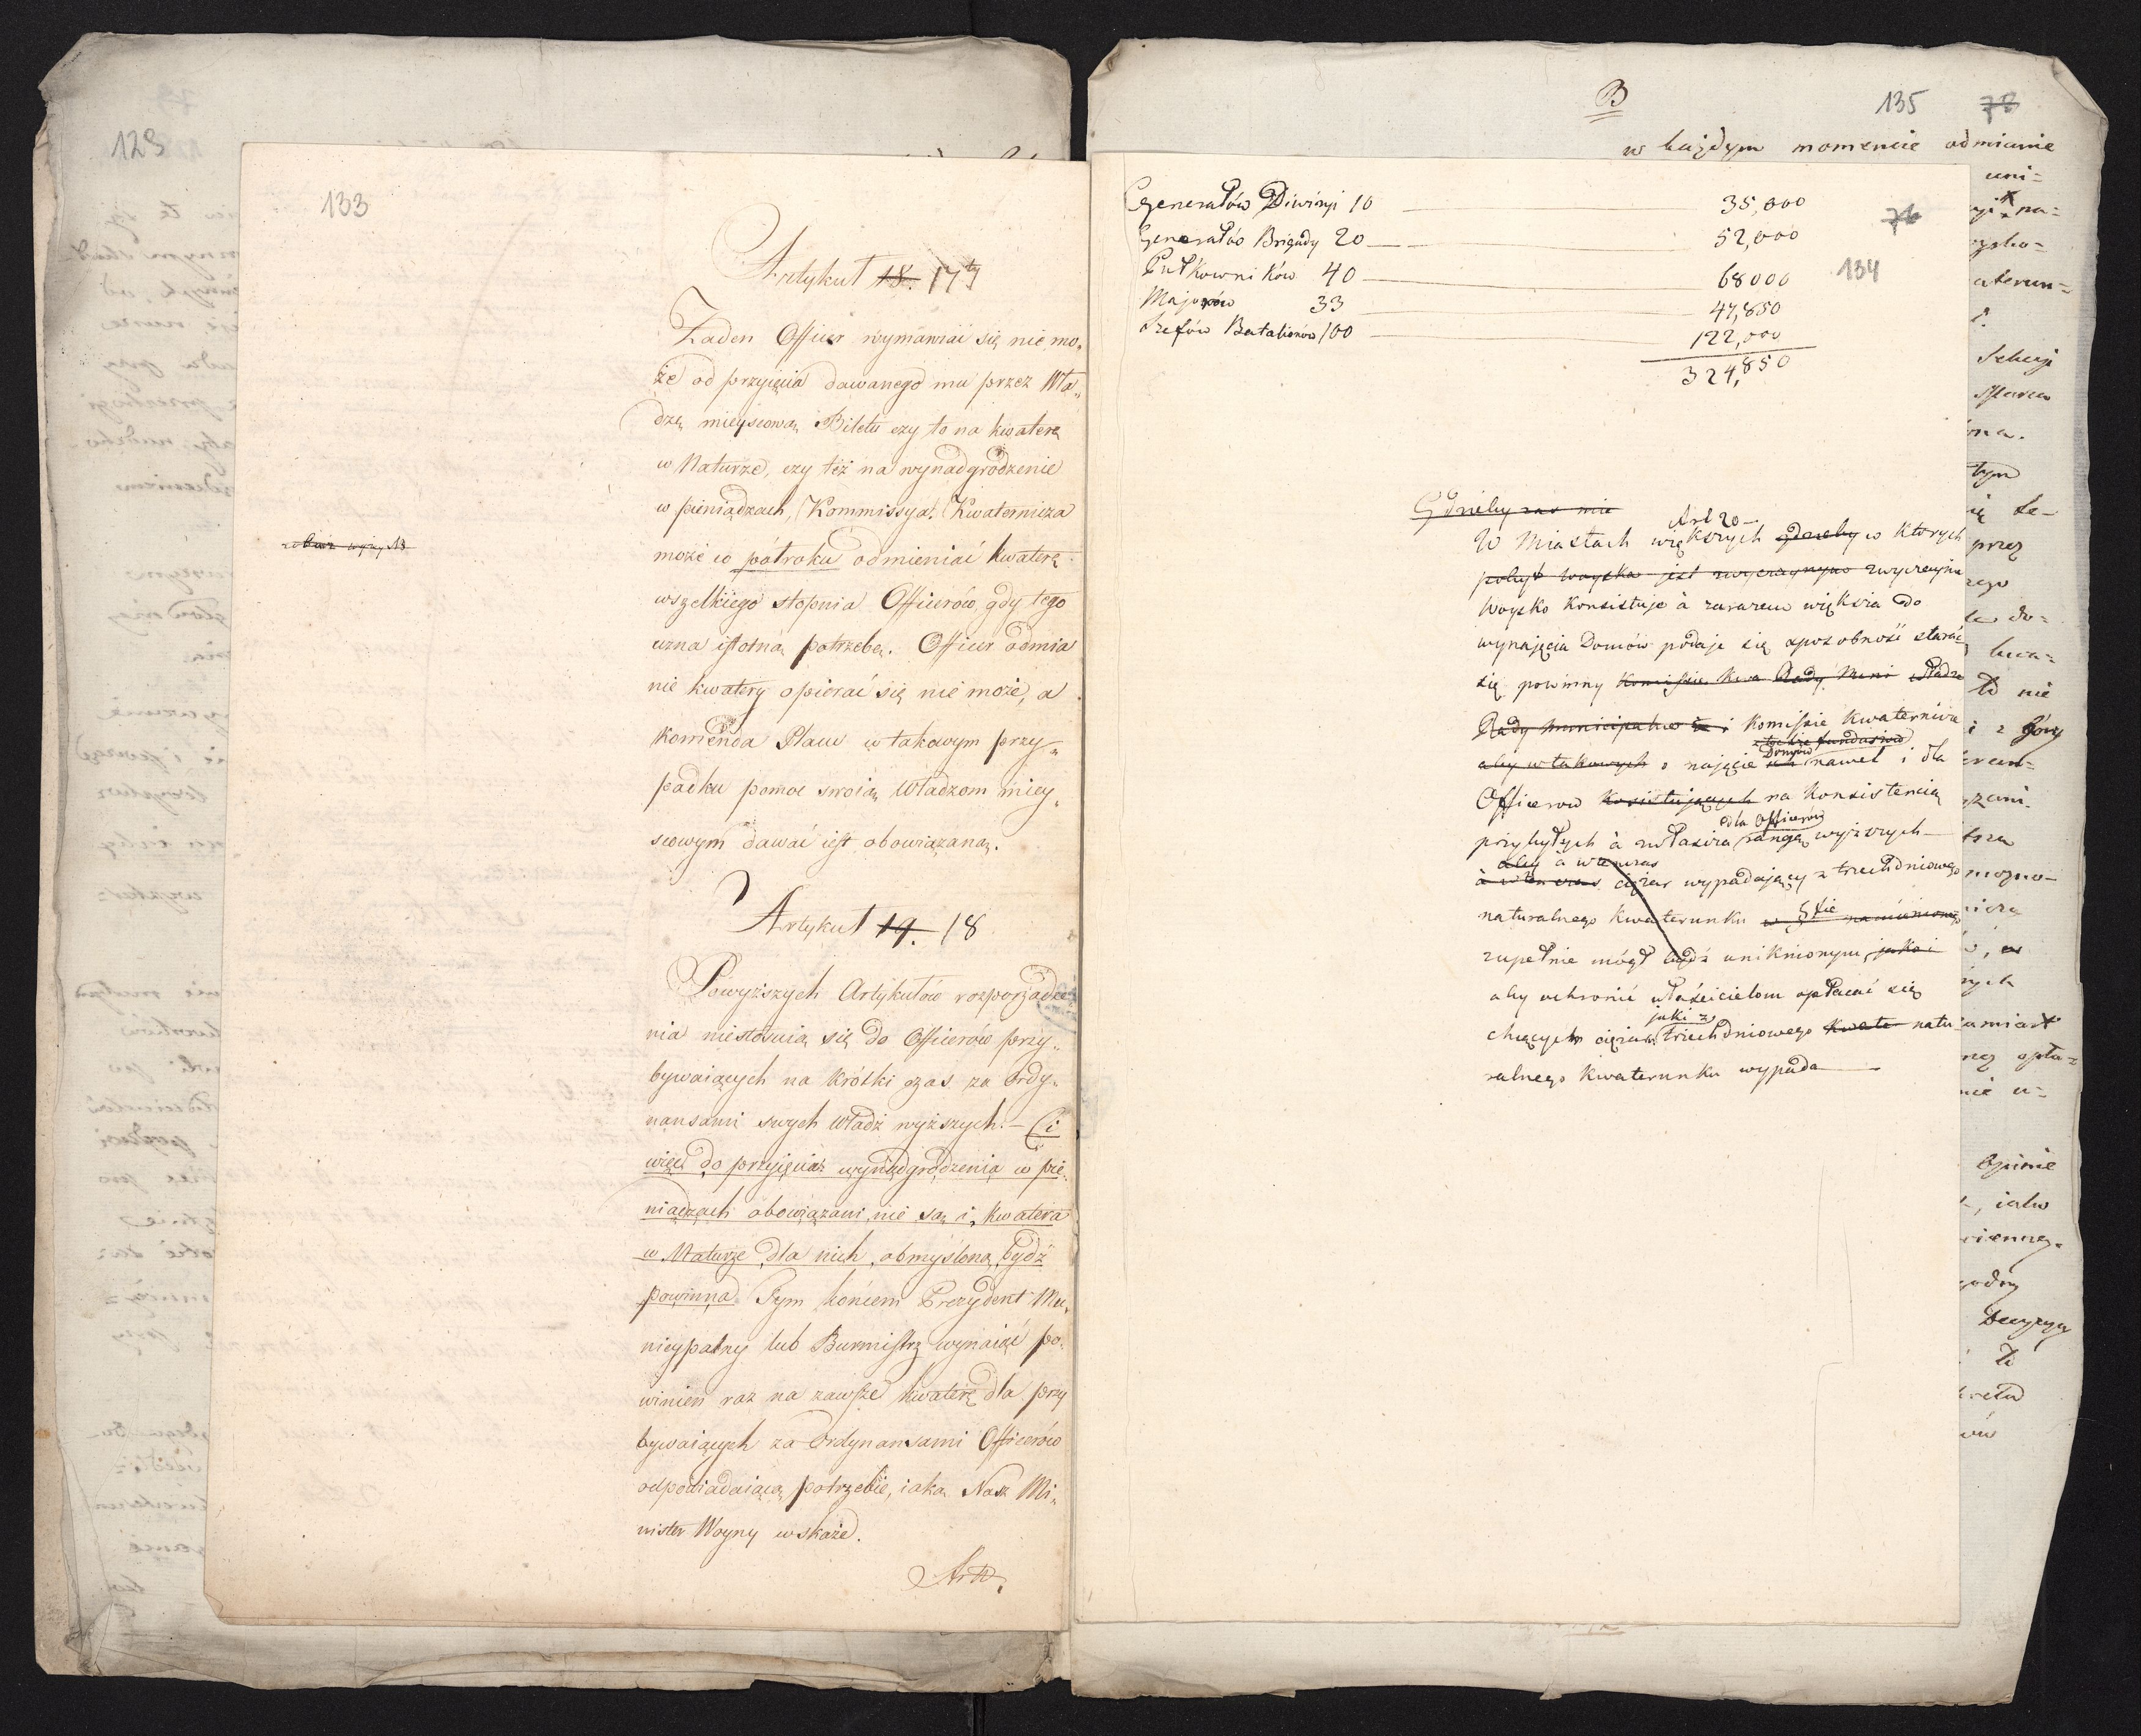 129
133
Artykuł 18. 17ty
Żaden Officer wymawiać się nie mo„
że od przyięcia dawanego mu przez Wła„
dzę mieyscową Biletu czy to na kwaterę
w Naturze, czy też na wynadgrodzenie
w pieniądzach, Kommissya Kwaternicza
może co pół roku odmieniać kwaterę
wszelkiego stopnia Officerów, gdy tego
uzna istotną potrzebę. Officer odmia
nie kwatery opierać się nie może, a
Komenda Placu w takowym przy„
padku pomoc swoią Władzom miey„
scowym dawać iest obowiązaną.
Artykuł 19. 18
Powyższych Artykułów rozporządze
nia niestosuią się do Officerów przy„
bywaiących na krótki czas za Ordy„
nansami swych Władz wyższych. – Ci
więc do przyięcia wynadgrodzenia w pie„
niądzach obowiązani nie są i kwatera
w Naturze dla nich obmyślona bydź
powinna. Tym końcem Prezydent Mu„
nicypalny lub Burmistrz wynaiąć po„
winien raz na zawsze kwaterę dla przy
bywaiących za Ordynansami Officerów
odpowiadaiącą potrzebie, iaką Nasz Mi„
nister Woyny wskaże.
Art.
B
135 78
w każdym momencie odmianie
Generałów Diwizyi 10 35,000
Generałów Brigady 20 52,000
76
Pułkowników 40 68000
134
Majorów 33 47,850
Szefów Batalionów 100 122,000
324,850
Gdzieby zas nie
Art 20 –
W Miastach większych gdzieby w których
pobyt woyska jest zwyczaynym zwyczaynie
Woysko konsistuje à zarazem większa do
wynajęcia Domów podaje się sposobność starać
się powinny Komissie Kwa Rady Muni władze
Rady Municipalne i Komissie Kwaternicze
funduszów
Domów
aby w takowych o najęcie ich nawet i dla
Officerow konsistujących na Konsistencią
dla Officerów
przybyłych à zwłaszcza rangą wyższych –
aby à wtenczas
à w ten czas ciężar wypadający z trzechdniowego
naturalnego Kwaterunku w §fie namienionego
zupełnie mógł bydź uniknionym, jako i
aby ochronić właścicielom opłacać się
jaki z
chcącym ciężaru trzechdniowego Kwate natu
ralnego Kwaterunku wypada –
uni=
na=
aterun=
tym
przez
do=
to nie
i z góry
opła=
nie u=
Opinie
to